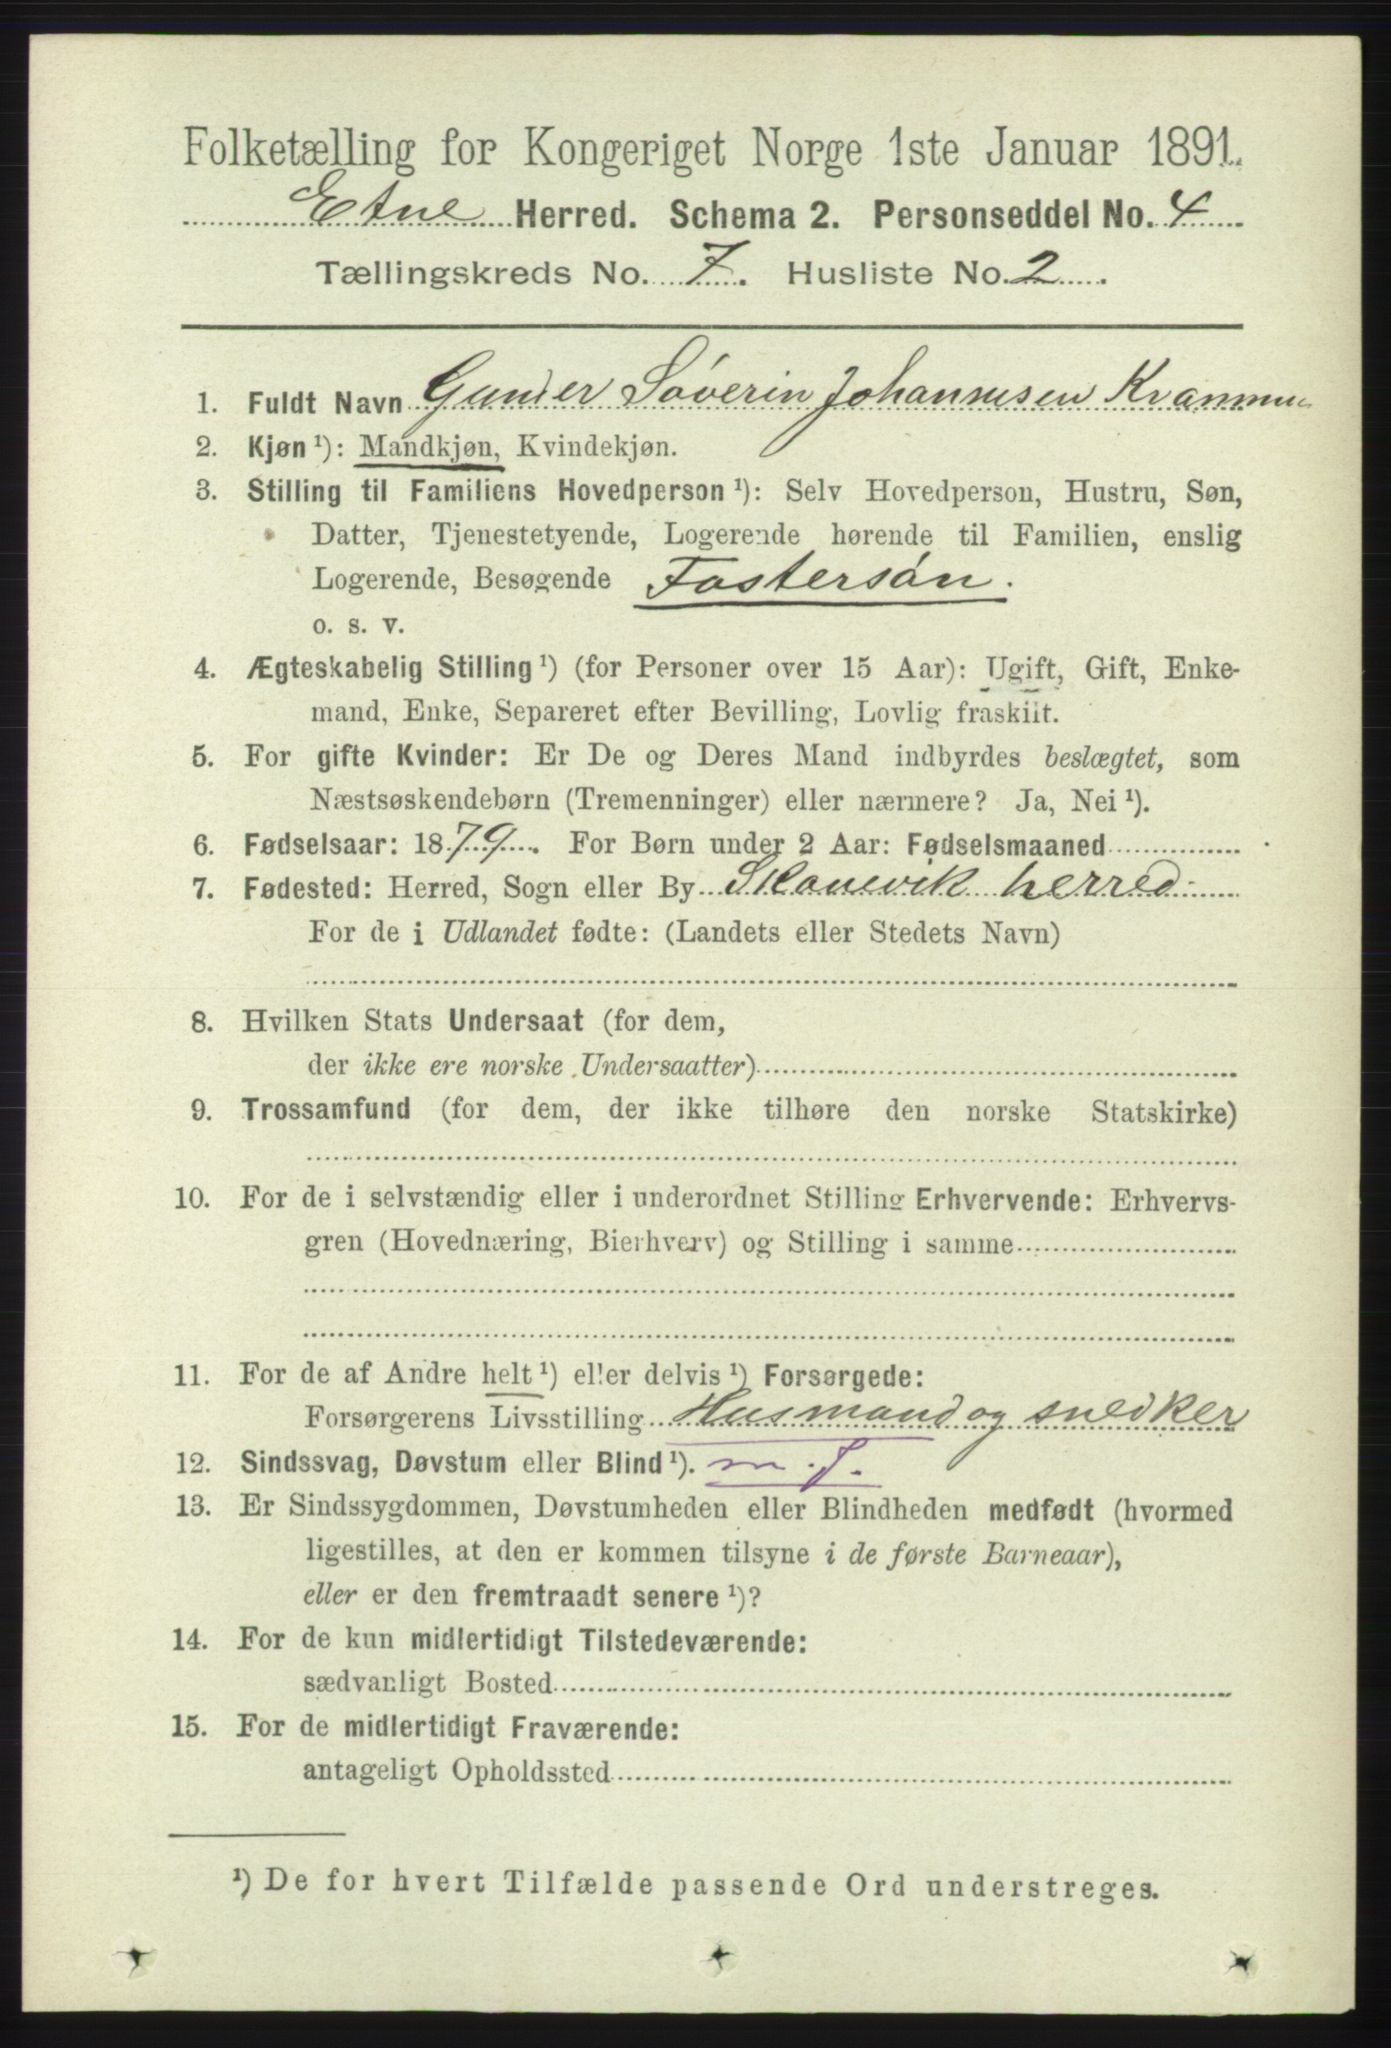 Folketælling for Kongeriget Norge 1ste Januar 1891.
Etne Herred. Schema 2. Personseddel No. 4
Tællingskreds No. 7. Husliste No. 2.
1. Fuldt Navn Gunder Søverin Johannesen
2. Kjøn ¹): Mandkjøn, Kvindekjøn.
3. Stilling til Familiens Hovedperson ¹): Selv Hovedperson, Hustru, Søn,
Datter, Tjenestetyende, Logerende hørende til Familien, enslig
Logerende, Besøgende Fostersøn.
o. s. v.
4. Ægteskabelig Stilling ¹) (for Personer over 15 Aar): Ugift, Gift, Enke-
mand, Enke, Separeret efter Bevilling, Lovlig fraskilt.
5. For gifte Kvinder: Er De og Deres Mand indbyrdes beslægtet, som
Næstsøskendebørn (Tremenninger) eller nærmere? Ja, Nei ¹).
6. Fødselsaar: 1879. For Børn under 2 Aar: Fødselsmaaned
7. Fødested: Herred, Sogn eller By Skonevik herred
For de i Udlandet fødte: (Landets eller Stedets Navn)
8. Hvilken Stats Undersaat (for dem,
der ikke ere norske Undersaatter)
9. Trossamfund (for dem, der ikke tilhøre den norske Statskirke)
10. For de i selvstændig eller i underordnet Stilling Erhvervende: Erhvervs-
gren (Hovednæring, Bierhverv) og Stilling i samme
11. For de af Andre helt ¹) eller delvis ¹) Forsørgede:
Forsørgerens Livsstilling Husmand og snedker
12. Sindssvag, Døvstum eller Blind ¹).
13. Er Sindssygdommen, Døvstumheden eller Blindheden medfødt (hvormed
ligestilles, at den er kommen tilsyne i de første Barneaar),
eller er den fremtraadt senere ¹)?
14. For de kun midlertidigt Tilstedeværende:
sædvanligt Bosted
15. For de midlertidigt Fraværende:
antageligt Opholdssted
¹) De for hvert Tilfælde passende Ord understreges.